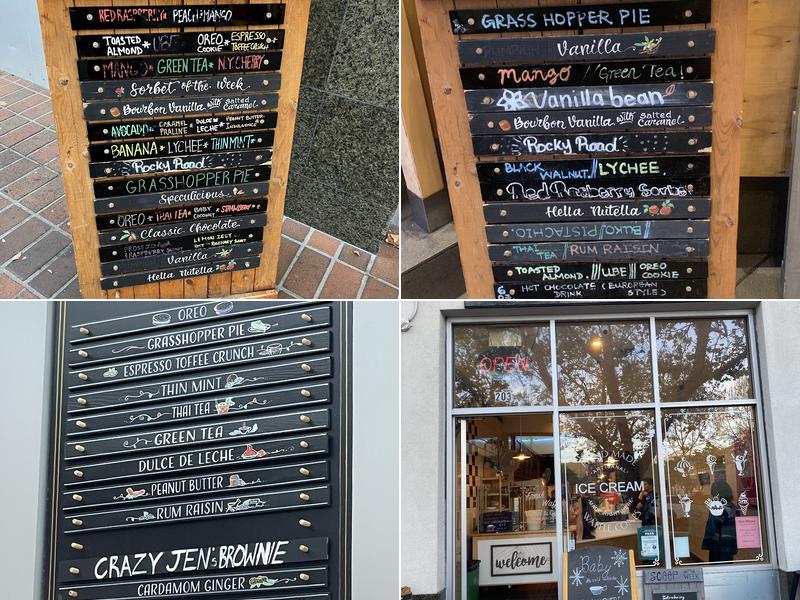 RED RASPBERRY PEACH MANGO
TOASTED ALMOND * UBE * OREO COOKIE * ESPRESSO TOFFEE CRUNCH *
MANGO * GREEN TEA * N.Y. CHERRY
Sorbet of the week
Bourbon Vanilla with Salted Caramel
AVOCADO * CARAMEL PRALINE * DULCE DE LECHE * PEANUT BUTTER INDULGENCE
BANANA * LYCHEE * THIN MINT
Rocky Road
GRASSHOPPER PIE
Speculicious
OREO * THAI TEA * BABY COCONUT * STRAWBERRY
Classic Chocolate
RASPBERRY LEMON ZEST
Vanilla
Hella Nutella
GRASS HOPPER PIE
PUMPKIN Vanilla
mango // Green Tea!
Vanilla bean
Bourbon Vanilla with Salted Caramel
Rocky Road
BLACK WALNUT // LYCHEE
Red Rasberry Sorbet
Hella Nutella
BUKO/PISTACHIO
THAI TEA / RUM RAISIN
TOASTED ALMOND /// UBE // OREO COOKIE
HOT CHOCOLATE (EUROPEAN
DRINK STYLE)
OREO
GRASSHOPPER PIE
ESPRESSO TOFFEE CRUNCH
THIN MINT
THAI TEA
GREEN TEA
DULCE DE LECHE
PEANUT BUTTER
RUM RAISIN
CRAZY JEN'S BROWNIE
CARDAMOM GINGER
OPEN
203
HAND MADE
ICE CREAM
Fresh
welcome
Baby
SCOOP WEEK
Introducing